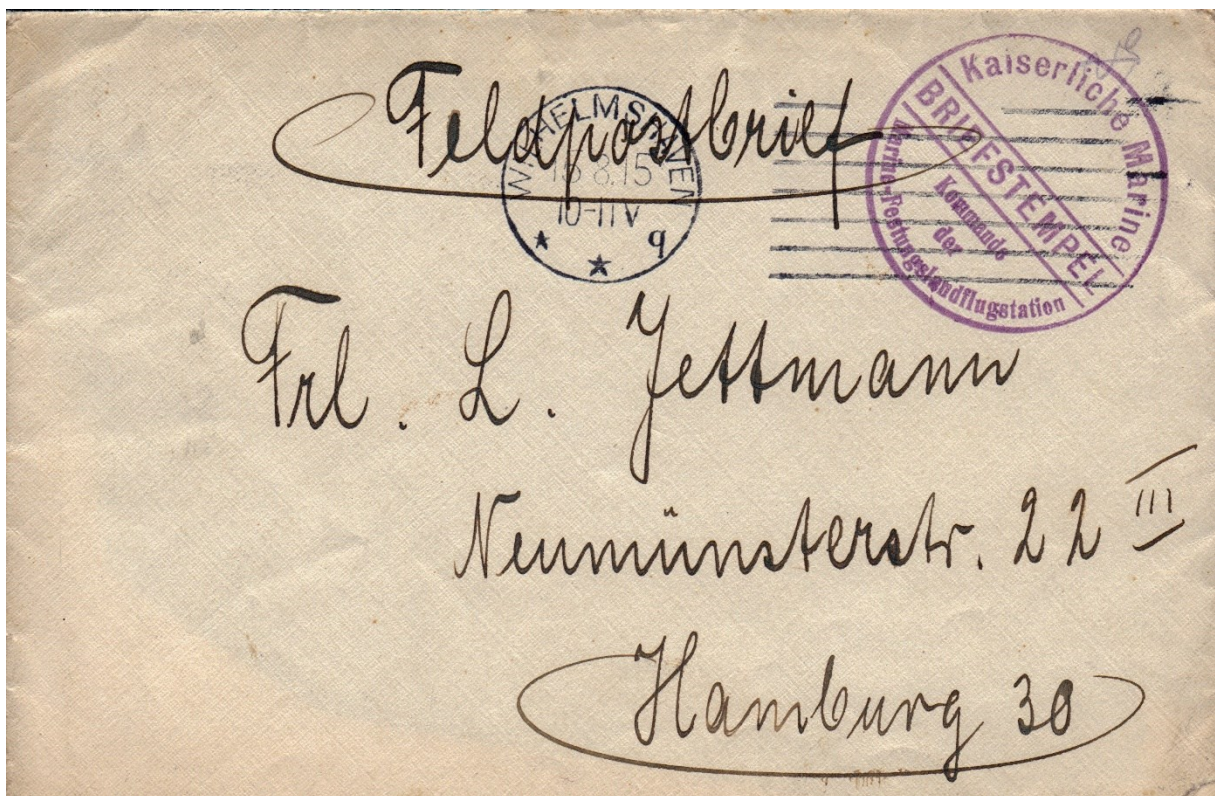 Feldpostbrief
WILHELMSHAVEN
8.15
10-11V
q
Kaiserliche Marine
BRIEFSTEMPEL
Kommando
der
Marine-Festungslandflugstation
Frl. L. Jettmann
Neumünsterstr. 22 III
Hamburg 30